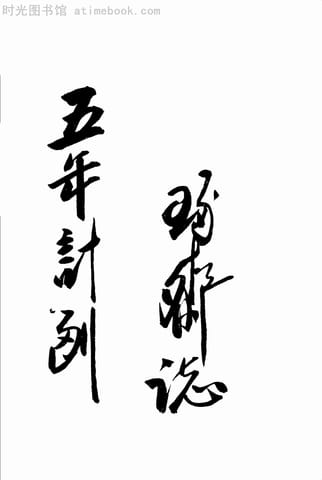 时光图书馆 atimebook.com
術誌
五年計劃